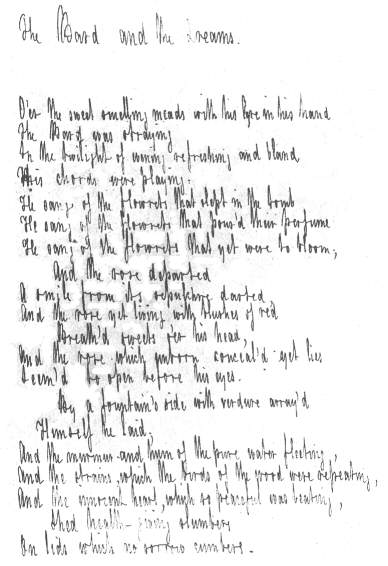 The Bard and the Dreams.
O'er the sweet smelling meads with his lyre in his hand
The Bard was straying
In the twilight of evening refreshing and bland
His chords were playing.
He sang of the flowrets that slept in the tomb
He sang of the flowrets that pour'd their perfume
He sang of the flowrets that yet were to bloom;
And the rose departed
A smile from its sepulchre darted
And the rose yet living with blushes of red
Breath'd sweets o'er his head,
And the rose which unborn conceal'd yet lies
Seem'd to open before his eyes.
By a fountain's side with verdure array'd
Himself he laid,
And the murmur and hum of the pure water fleeting,
And the strains, which the birds of the wood were repeating,
And the innocent heart, which so peaceful was beating,
Shed health-giving slumbers
On lids which no sorrow cumbers.